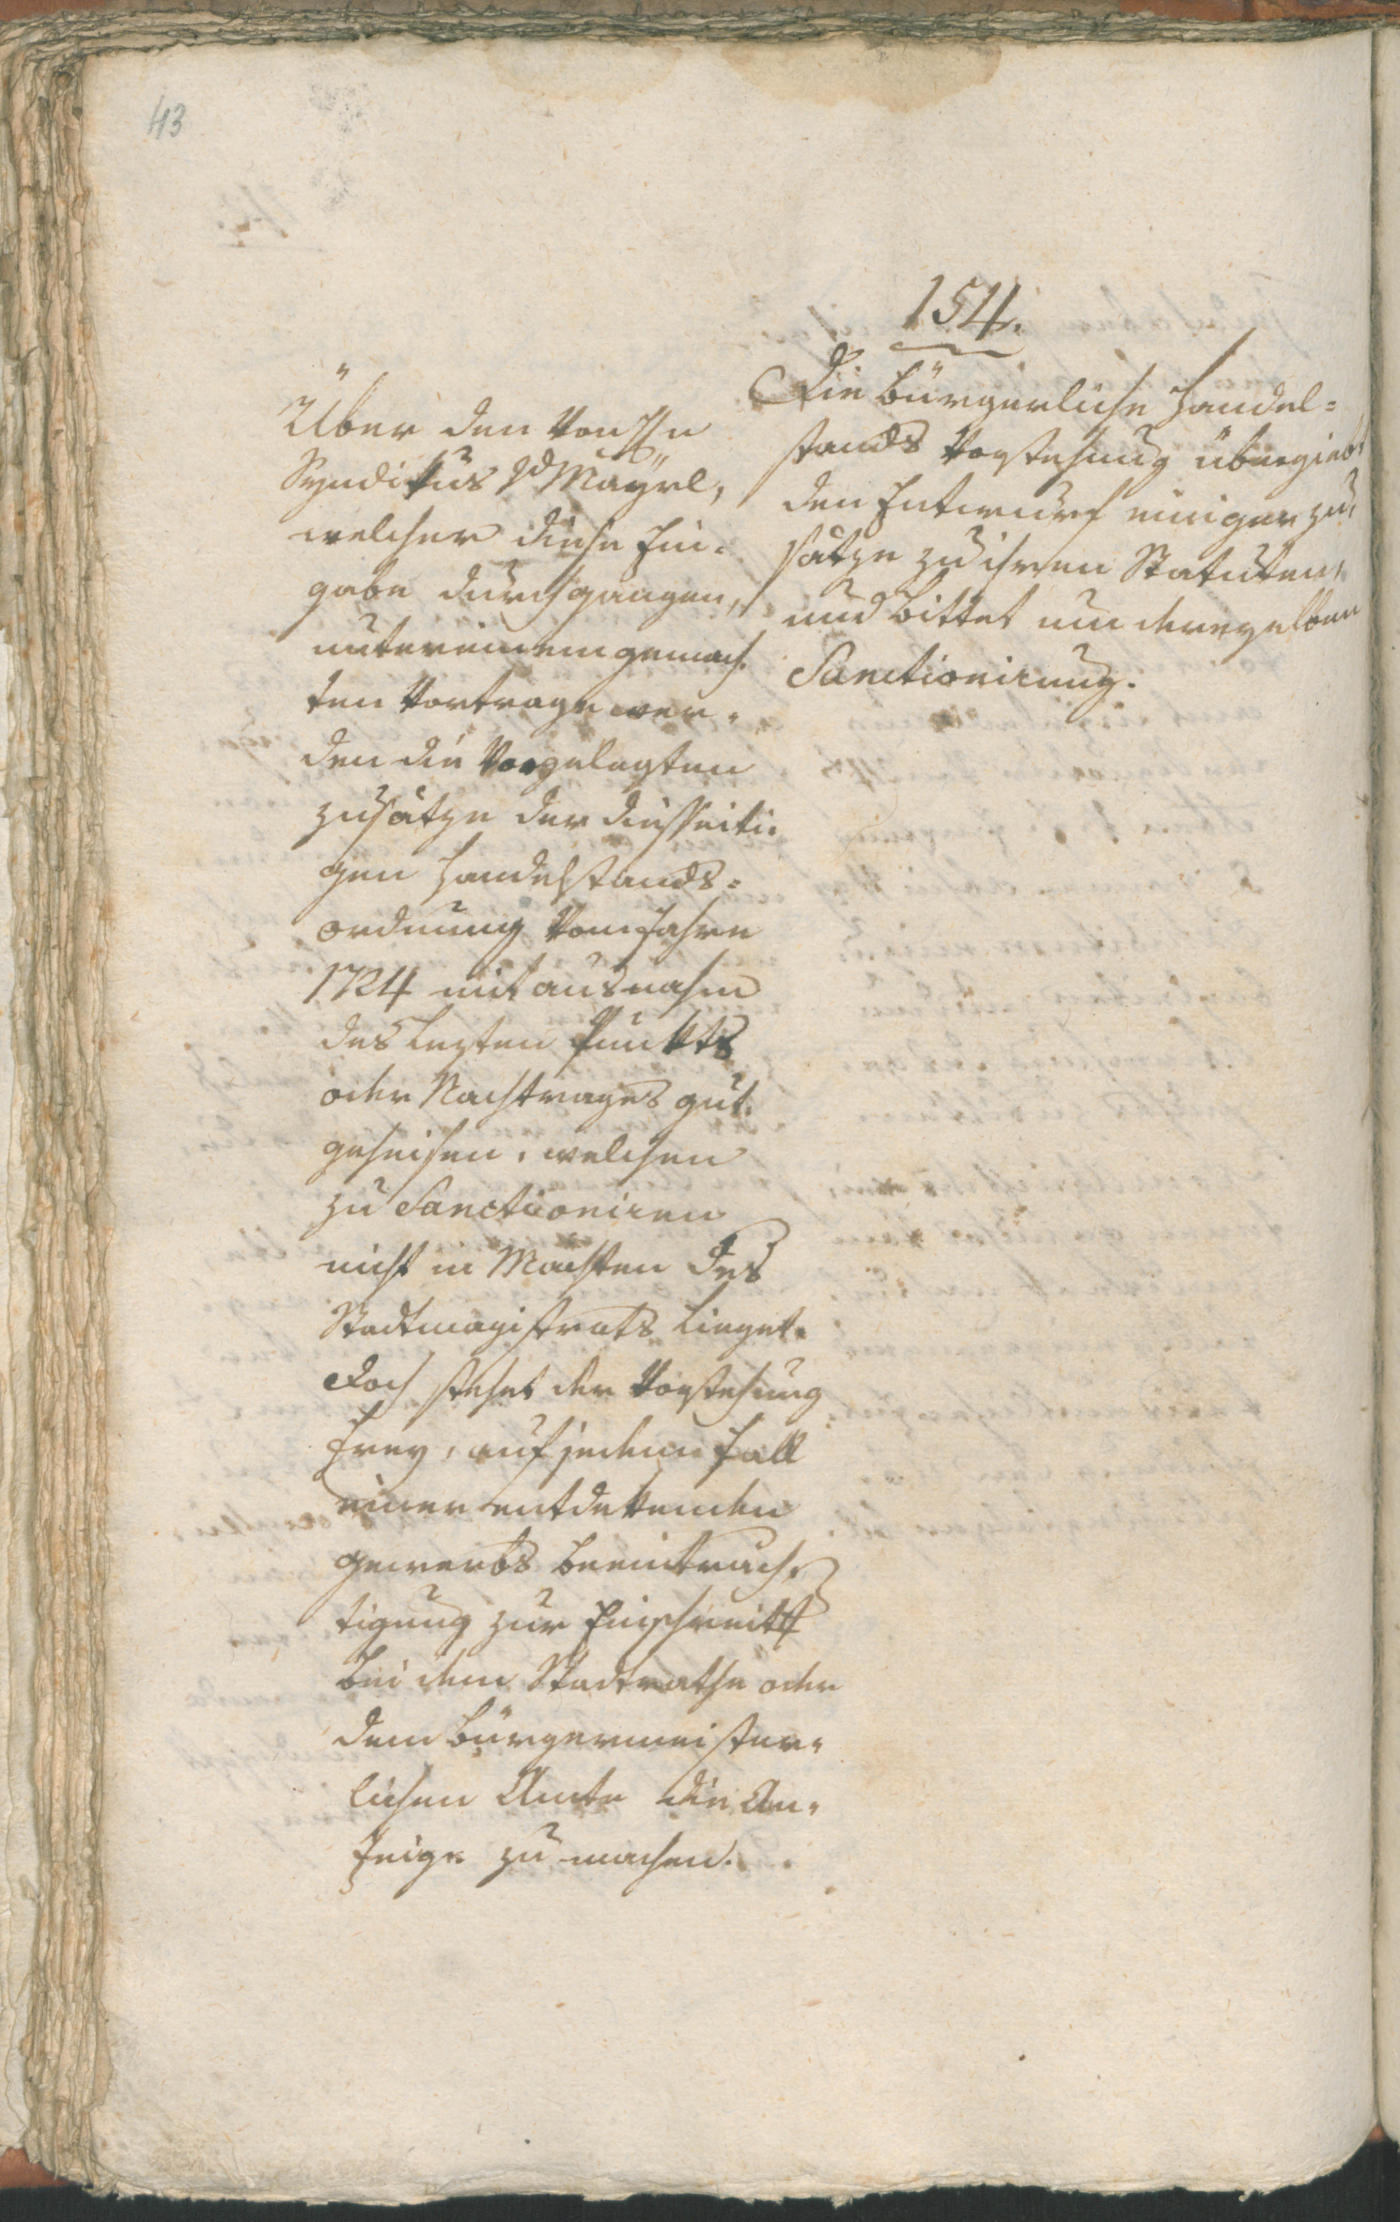 43
154.
Die bürgerliche Handel=
stands Vorstehung übergiebt
den Entwurf einiger Zu,
sätze zu ihren Statuten,
und bittet um derenselben
Sanctionirung.
Über den von H
Syndikus v Mayrl,
welcher diese Ein,
gabe durchgangen,
unter einem gemach,
ten Vortrage wer,
den die Vorgelegten
Zusätze der diesseiti,
gen Handelstands=
ordnung vom Jahre
1724 mit ausnahm
des lezten Punkts
oder Nachtrages gut,
geheisen, welchen
zu Sanctioniren
nicht in Machten des
Stadtmagistrats lieget.
doch stehet der Vorstehung
frey, auf jedem Fall
einer entdekenden
gewerbs beeintrach,
tigung zur Einschreitt
bei dem Stadtrathe oder
dem bürgermeister,
lichen Amte die An,
zeige zu machen.